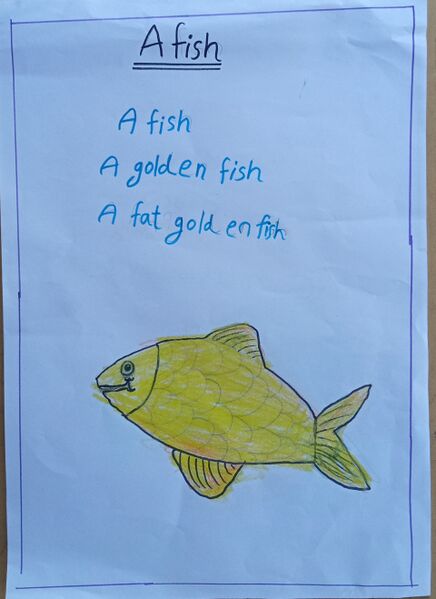 A fish
A fish
A golden fish
A fat golden fish